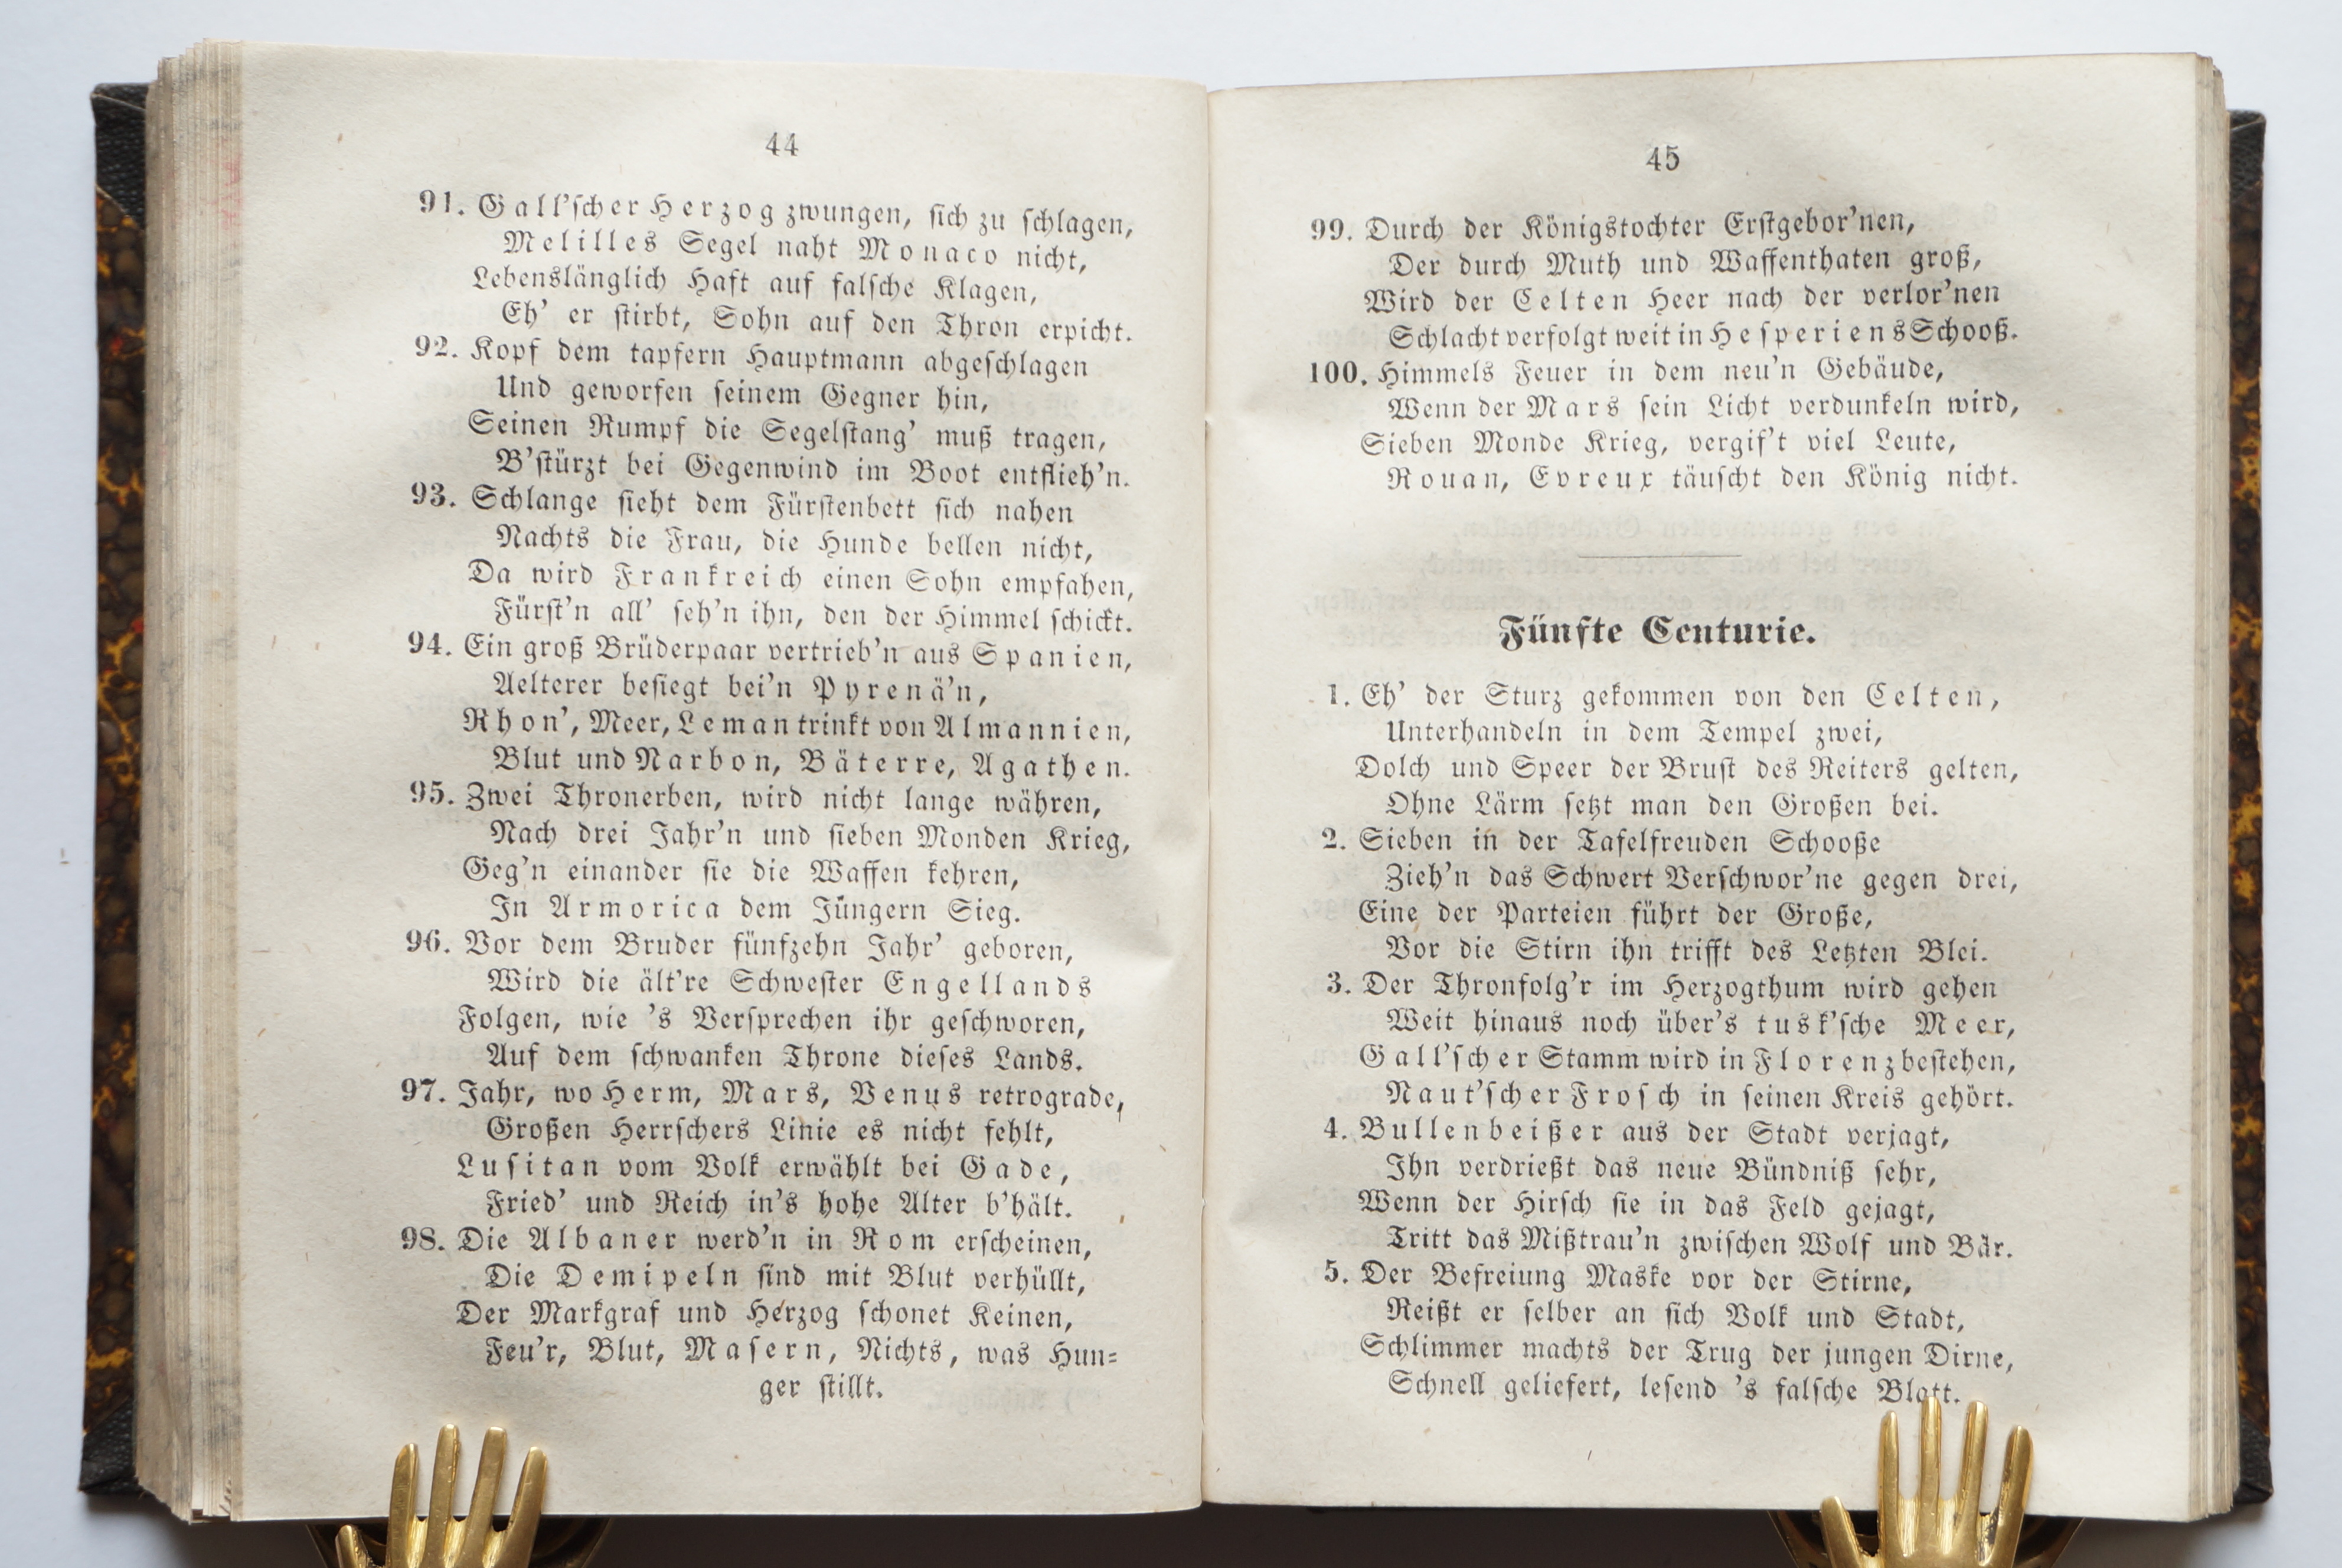 44
91. Gall'ſcher Herzog zwungen, ſich zu ſchlagen,
Melilles Segel naht Monaco nicht,
Lebenslänglich Haft auf falſche Klagen,
Eh' er ſtirbt, Sohn auf den Thron erpicht.
92. Kopf dem tapfern Hauptmann abgeſchlagen
Und geworfen ſeinem Gegner hin,
Seinen Rumpf die Segelſtang' muß tragen,
B'ſtürzt bei Gegenwind im Boot entflieh'n.
93. Schlange ſieht dem Fürſtenbett ſich nahen
Nachts die Frau, die Hunde bellen nicht,
Da wird Frankreich einen Sohn empfahen,
Fürſt'n all' ſeh'n ihn, den der Himmel ſchickt.
94. Ein groß Brüderpaar vertrieb'n aus Spanien,
Aelterer beſiegt bei'n Pyrenä'n,
Rhon', Meer, Leman trinkt von Almannien,
Blut und Narbon, Bäterre, Agathen.
95. Zwei Thronerben, wird nicht lange währen,
Nach drei Jahr'n und ſieben Monden Krieg,
Geg'n einander ſie die Waffen kehren,
In Armorica dem Jüngern Sieg.
96. Vor dem Bruder fünfzehn Jahr' geboren,
Wird die ält're Schweſter Engellands
Folgen, wie 's Verſprechen ihr geſchworen,
Auf dem ſchwanken Throne dieſes Lands.
97. Jahr, wo Herm, Mars, Venus retrograde,
Großen Herrſchers Linie es nicht fehlt,
Luſitan vom Volk erwählt bei Gade,
Fried' und Reich in's hohe Alter b'hält.
98. Die Albaner werd'n in Rom erſcheinen,
Die Demipeln ſind mit Blut verhüllt,
Der Markgraf und Herzog ſchonet Keinen,
Feu'r, Blut, Maſern, Nichts, was Hun=
ger ſtillt.
45
99. Durch der Königstochter Erſtgebor'nen,
Der durch Muth und Waffenthaten groß,
Wird der Celten Heer nach der verlor'nen
Schlacht verfolgt weit in Heſperiens Schooß.
100. Himmels Feuer in dem neu'n Gebäude,
Wenn der Mars ſein Licht verdunkeln wird,
Sieben Monde Krieg, vergif't viel Leute,
Rouan, Evreux täuſcht den König nicht.
Fünfte Centurie.
1. Eh' der Sturz gekommen von den Celten,
Unterhandeln in dem Tempel zwei,
Dolch und Speer der Bruſt des Reiters gelten,
Ohne Lärm ſetzt man den Großen bei.
2. Sieben in der Tafelfreuden Schooße
Zieh'n das Schwert Verſchwor'ne gegen drei,
Eine der Parteien führt der Große,
Vor die Stirn ihn trifft des Letzten Blei.
3. Der Thronfolg'r im Herzogthum wird gehen
Weit hinaus noch über's tusk'ſche Meer,
Gall'ſcher Stamm wird in Florenz beſtehen,
Naut'ſcher Froſch in ſeinen Kreis gehört.
4. Bullenbeißer aus der Stadt verjagt,
Ihn verdrießt das neue Bündniß ſehr,
Wenn der Hirſch ſie in das Feld gejagt,
Tritt das Mißtrau'n zwiſchen Wolf und Bär.
5. Der Befreiung Maske vor der Stirne,
Reißt er ſelber an ſich Volk und Stadt,
Schlimmer machts der Trug der jungen Dirne,
Schnell geliefert, leſend 's falſche Blatt.